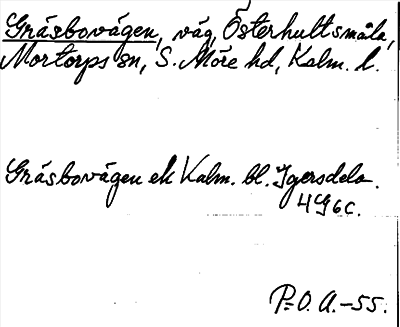 Gräsbovägen, väg, Österhultsmåla,
Mortorps sn, S. Möre hd, Kalm. l.
Gräsbovägen ek Kalm. bl. Igersdela.
4G6c.
P-O. A.-55.